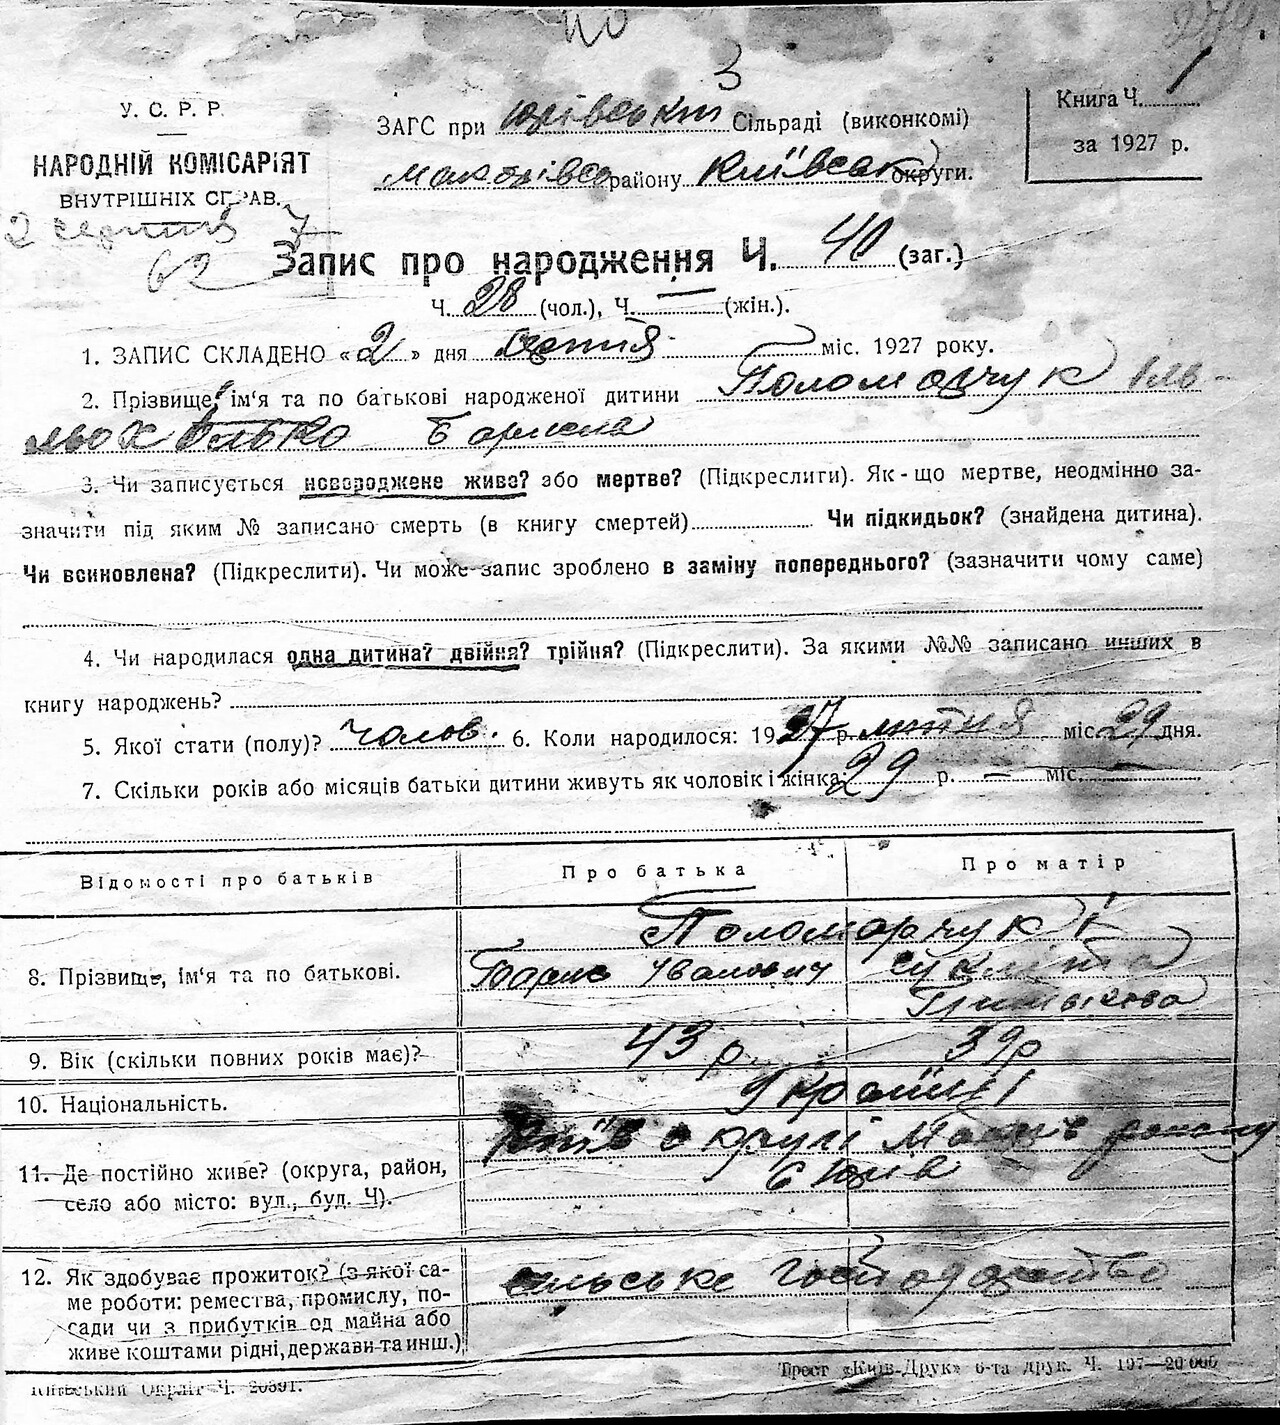 3
У. С. Р. Р.
НАРОДНІЙ КОМІСАРІЯТ
ВНУТРІШНІХ СПРАВ.
ЗАГС при Юрівськім Сільраді (виконкомі)
району Київськ округи.
Книга Ч. 1
за 1927 р.
2 серпня 7
62
Запис про народження Ч. 40 (заг.)
Ч. 28 (чол.), Ч. — (жін.).
1. ЗАПИС СКЛАДЕНО «2» дня міс. 1927 року.
2. Прізвище, ім'я та по батькові народженої дитини Поломарчук
Бориса
3. Чи записується новороджене живе? або мертве? (Підкреслити). Як-що мертве, неодмінно за-
значити під яким № записано смерть (в книгу смертей) Чи підкидьок? (знайдена дитина).
Чи всиновлена? (Підкреслити). Чи може запис зроблено в заміну попереднього? (зазначити чому саме)
4. Чи народилася одна дитина? двійня? трійня? (Підкреслити). За якими №№ записано инших в
книгу народжень?
5. Якої стати (полу)? чолов. 6. Коли народилося: 1927 р. міс. 29 дня.
7. Скільки років або місяців батьки дитини живуть як чоловік і жінка 29 р. — міс.
Відомості про батьків
Про батька
Про матір
8. Прізвище, ім'я та по батькові.
Поломарчукі
Борис Іванович
9. Вік (скільки повних років має)?
43 р
39р
10. Національність.
Україн
11. Де постійно живе? (округа, район,
село або місто: вул., буд. Ч).
Київ округі Макарів району
с Юрів
12. Як здобуває прожиток? (з якої са-
ме роботи: ремества, промислу, по-
сади чи з прибутків од майна або
живе коштами рідні, держави та инш.)
сільське господарство
Київський Окрліт Ч. 20391.
Трест «Київ-Друк» 6-та друк. Ч. 197—20 000